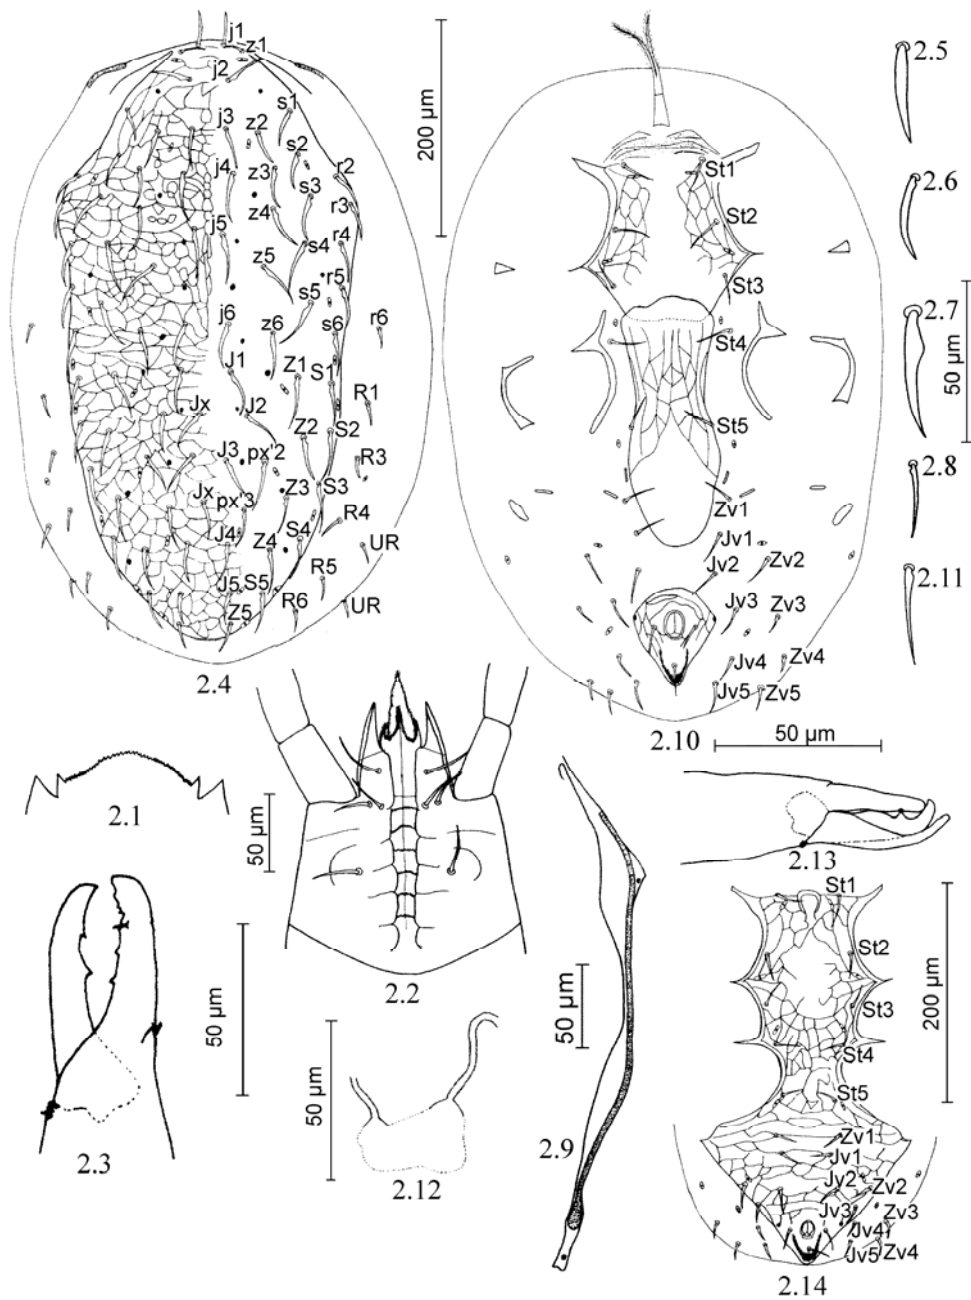 j1
z1
j2
s1
j3
z2
s2
j4
z3
r2
s3
z4
r3
j5
s4
r4
z5
r5
s5
j6
z6
s6
r6
J1
Z1
S1
R1
Jx
J2
Z2
S2
J3
px'2
R3
Z3
S3
Jx
px'3
R4
J4
Z4
S4
UR
J5
S5
R5
Z5
R6
UR
2.4
200 µm
St1
St2
St3
St4
St5
Zv1
Jv1
Jv2
Zv2
Jv3
Zv3
Jv4
Zv4
Jv5
Zv5
2.10
2.5
2.6
2.7
50 µm
2.8
2.11
2.1
50 µm
2.2
50 µm
2.3
50 µm
2.12
50 µm
2.9
50 µm
2.13
St1
St2
St3
St4
St5
Zv1
Jv1
Jv2
Zv2
Jv3
Zv3
Jv4
Jv5
Zv4
200 µm
2.14